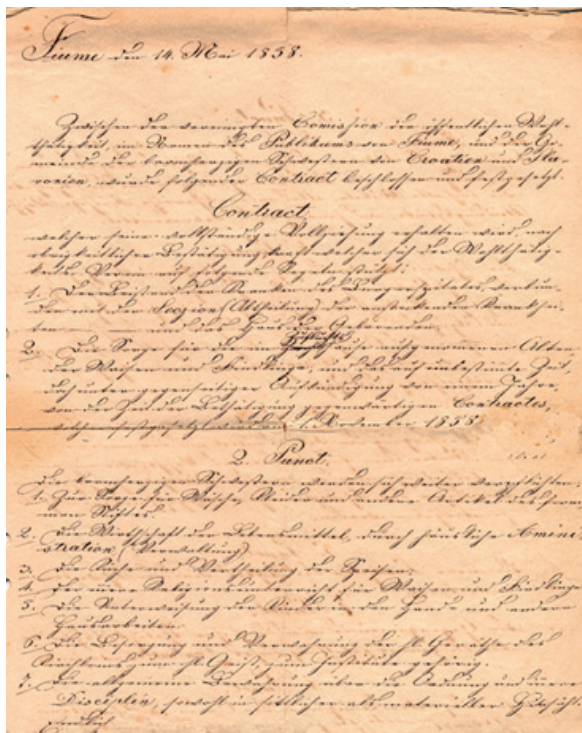 Fiume den 14. Mai 1858.
Zwischen der vereinigten Comission der öffentlichen Wohl-
thätigkeit, im Namen des Publikums von Fiume, und der Ge-
meinde der barmherzigen Schwestern von Croatien und Sla-
vonien, wurde folgender Contract beschlossen und festgesetzt.
Contract,
welcher seine vollständige Vollziehung erhalten wird, nach
obrigkeitlicher Bestätigung, kraft welcher sich der Wohlthätig-
keits Verein auf folgende Regeln stützt:
1. Der Beistand der Kranken des Bürgerspitales, verbun-
den mit der Sezion (Abtheilung) der ansteckenden Krankhei-
ten und das Haus der Gebärenden.
2. Die Sorge für die im Hause aufgenommenen Alten,
der Waisen und Findlinge, und das auf unbestimmte Zeit,
doch unter gegenseitiger Aufkündigung von einem Jahre,
von der Zeit der Bestätigung gegenwärtigen Contractes,
festgesetzt 1. November 1858.
2. Punct.
Die barmherzigen Schwestern werden sich weiter verpflichten:
1. Zur Sorge für Wäsche, Kleider und andere Artikel
2. Die Wirthschaft der Lebensmittel, durch häusliche Amini-
stration (Verwaltung)
3. Die Küche und Vertheilung der Speisen.
4. Der Religionsunterricht für Waisen und Findlinge
5. Die Unterweisung der Kinder in den Hand- und andern
Hausarbeiten.
6. Die Besorgung und Verwahrung der hl. Geräthe des
Kirchleins zum hl. Geist, zum Institute gehörig.
7. Die allgemeine Bewachung über die Ordnung und innere
Disciplin, sowohl in sittlicher als materieller Hinsicht.